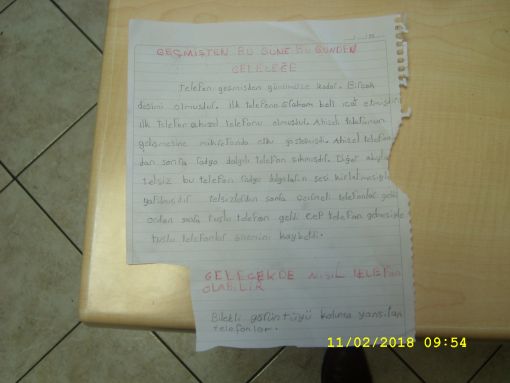 GEÇMİŞTEN BU GÜNE BU GÜNDEN
GELELEĞE
Telefon geçmişten günümüze kadar. Birçok
olmuştur. ilk telefonu Graham bell icat etmiştir
ilk Telefon ahizeli telefonu olmuştur. Ahizeli telefonun
gelişmesine mikrofonda etki göstermişti. Ahizeli telefon
dan sonra radyo dalgalı telefon çıkmıştır. Diğer
telsiz bu telefon radyo dalgaların sesi
yapılmıştır telsizlerden sonra çevirmeli telefonlar geldi
ordan sonra tuşlu telefon geldi cep telefon gelmesiyle
tuşlu telefonlar önemini kaybetti.
GELECEKDE NASIL TELEFON
OLABİLİR
Bilekli görüntüyü koluna yansıtan
telefonlar.
11/02/2018 09:54